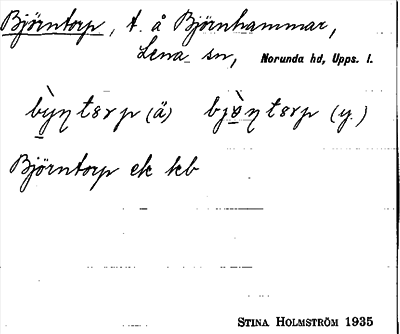 Björntorp, t. å Björnhammar,
Lena sn, Norunda hd, Upps. l.
(ä) (y.)
Björntorp ek kb
STINA HOLMSTRÖM 1935